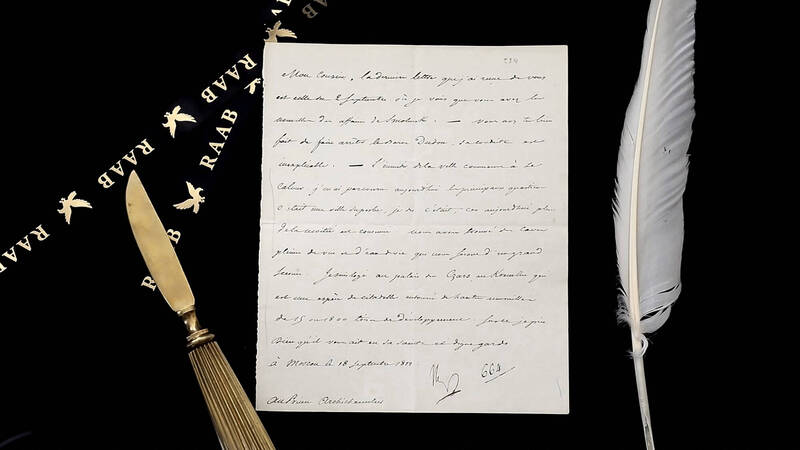 RAAB
RAAB
RAAB
RAAB
RAAB
234
Mon Cousin, la dernière lettre que j'ai reçue de vous
est celle du 2 Septembre où je vois que vous avez les
nouvelles des affaires de Smolensk. — Vous avez très bien
fait de faire arrêter le baron Dudon, sa conduite est
inexplicable. — L'incendie de la ville commence à se
calmer, j'ai parcouru aujourd'hui les principaux quartiers
c'était une ville superbe, je dis c'était, car aujourd'hui plus
de la moitié est consumée nous avons trouvé des caves
pleines de vin et d'eau de vie qui nous seront d'un grand
secours. Je suis logé au palais des Czars, au Kremlin qui
est une espèce de citadelle entourée de hautes murailles
de 15 ou 1800 toises de développement. Sur ce je prie
Dieu qu'il vous ait en sa sainte et digne garde
à Moscou le 18 Septembre 1812
664
Au Prince Archichancelier